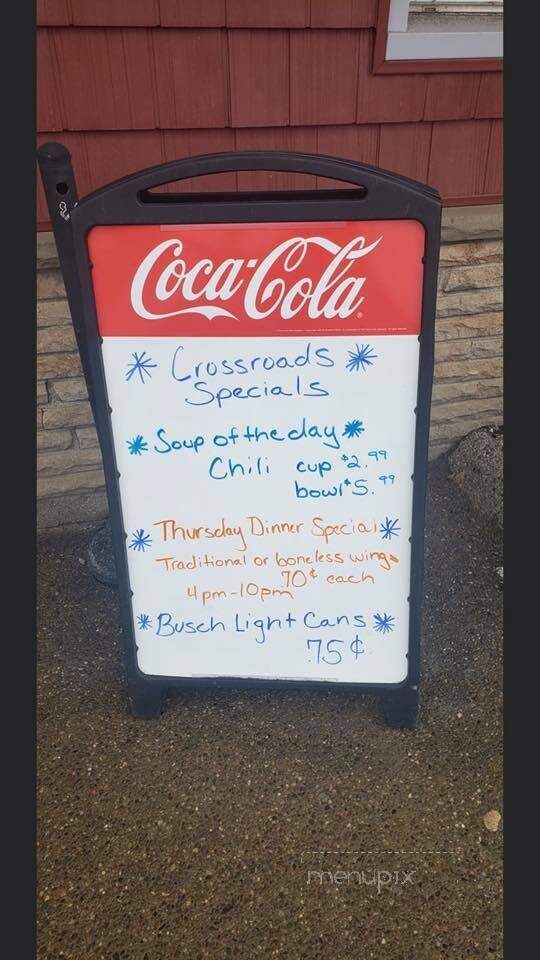 Coca-Cola
Crossroads
Specials
Soup of the day
Chili cup $2.99
bowl $5.99
Thursday Dinner Special
Traditional or boneless wings
70¢ each
4pm-10pm
Busch Light Cans
.75¢
menupix